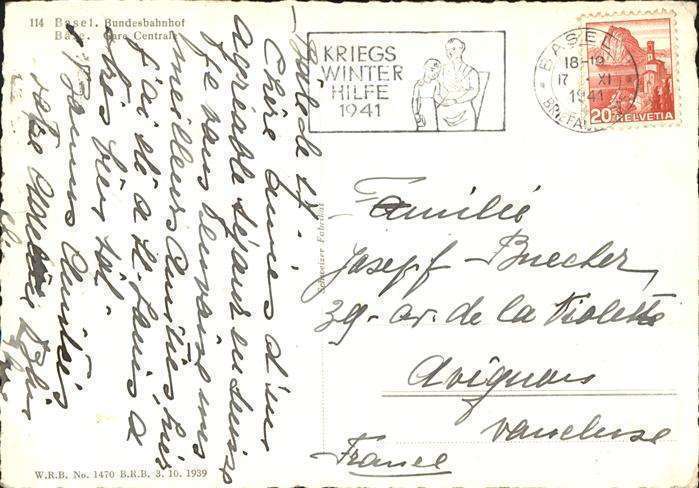 114 Basel. Bundesbahnhof
Bâle. Gare Centrale
KRIEGS
WINTER
HILFE
1941
BASEL
18-19
17 XI
1941
BRIEFAU
20 HELVETIA
Schweizer Fabrikat
Bâle le 17.
Chère d'un
agréable séjour en Suisse
Je vous envoie mes
meilleurs Amitiés, hier
j'ai été a St. Louis a
très
Bonnes Amitiés
votre
Familie
Josepf Buecher
39- av. de la Violette
Avignon
Vaucluse
France
W.R.B. No. 1470 B.R.B. 3. 10. 1939